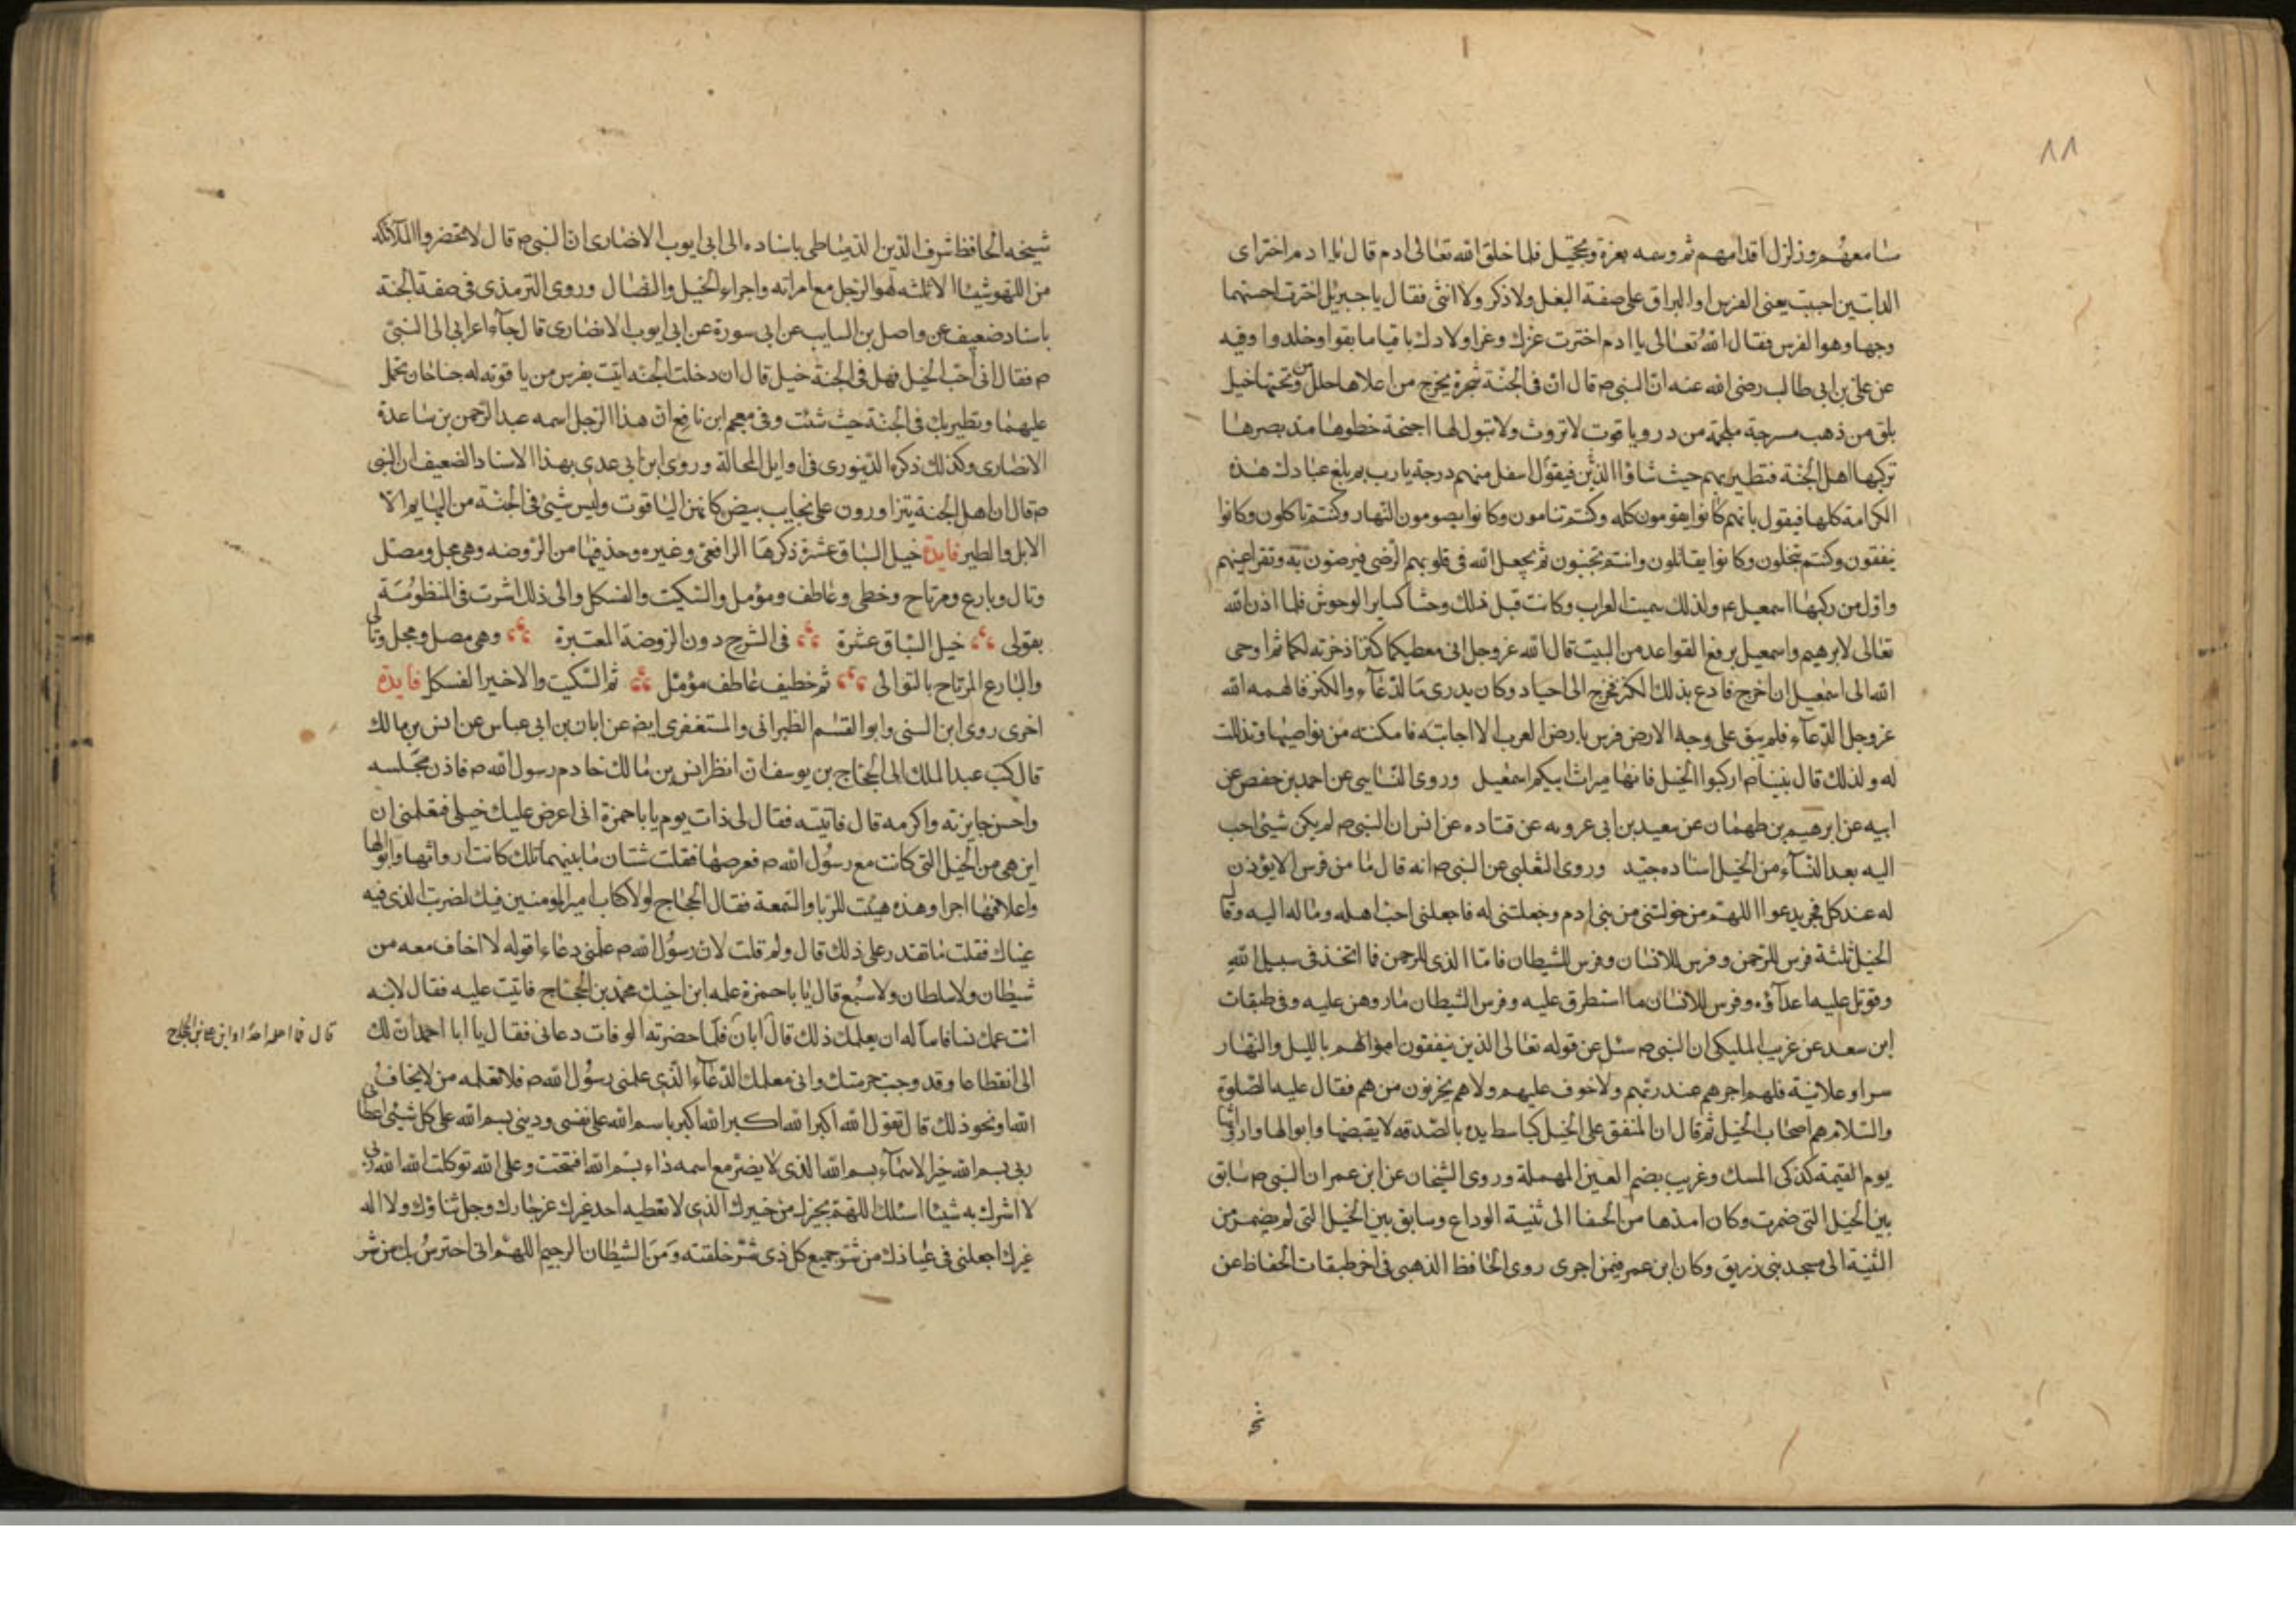 ١١
مسامعهم وزلزل اقدامهم ثم وسمه بغرة وتحجيل فلما خلق الله تعالى ادم قال يا ادم اختر اى
الدابتين احببت يعنى الفرس او البراق على صفة البغل ولا ذكر ولا انثى فقال يا جبريل اخترت احسنهما
وجها وهو الفرس فقال الله تعالى يا ادم اخترت عزك وعز اولادك باقيا ما بقوا وخلدوا وفيه
عن على بن ابى طالب رضى الله عنه ان النبى ص قال ان فى الجنة شجرة يخرج من اعلاها حلل ومن تحتها خيل
بلق من ذهب مسرجة ملجمة من در وياقوت لا تروث ولا تبول لها اجنحة خطوها مد بصرها
تركبها اهل الجنة فتطير بهم حيث شاؤا الذين فيقول اسفل منهم درجة يا رب بم بلغ عبادك هذه
الكرامة كلها فيقول بانهم كانوا يقومون كله وكنتم تنامون وكانوا يصومون النهار وكنتم تاكلون وكانوا
ينفقون وكنتم تبخلون وكانوا يقاتلون وانتم تجبنون ثم يجعل الله فى قلوبهم الرضى فيرضون به وتقر اعينهم
واول من ركبها اسمعيل عم ولذلك سميت العراب وكانت قبل ذلك وحشا كساير الوحوش فلما اذن الله
تعالى لابرهيم واسمعيل برفع القواعد من البيت قال الله عز وجل انى معطيكما كنزا ذخرته لكما ثم اوحى
الله الى اسمعيل ان اخرج فادع بذلك الكنز فخرج الى احياد وكان يدرى ما الدعآء والكنز فالهمه الله
عز وجل الدعآء فلم يبق على وجه الارض فرس بارض العرب الا اجابته فامكنته من نواصيها وتذللت
له ولذلك قال نبينا ص اركبوا الخيل فانها ميراث ابيكم اسمعيل وروى النساى عن احمد بن حفص عن
ابيه عن ابرهيم بن طهمان عن سعيد بن ابى عروبه عن قتاده عن انس ان النبى ص لم يكن شيئ احب
اليه بعد النسآء من الخيل اسناده جيد وروى الثعلبى عن النبى ص انه قال ما من فرس الا يؤذن
له عند كل فجر يدعوا اللهم من خولتنى من بنى ادم وجعلتنى له فاجعلنى احب اهله وماله اليه وقال
الخيل ثلثة فرس للرحمن وفرس للانسان وفرس للشيطان فاما الذى للرحمن فا اتخذ فى سبيل الله
وقوتل عليه اعدآؤه وفرس للانسان ما استطرق عليه وفرس الشيطان ما روهن عليه وفى طبقات
ابن سعد عن غريب المليكى ان النبى ص سئل عن قوله تعالى الذين ينفقون اموالهم بالليل والنهار
سرا وعلانية فلهم اجرهم عند ربهم ولا خوف عليهم ولا هم يحزنون من هم فقال عليه الصلوة
والسلام هم اصحاب الخيل ثم قال ان المنفق على الخيل كباسط يده بالصدقه لا يقبضها وابوالها وارواثها
يوم القيمة كذكى المسك وغريب بضم العين المهملة وروى الشيخان عن ابن عمر ان النبى ص سابق
بين الخيل التى ضمرت وكان امدها من الحفيا الى ثنية الوداع وسابق بين الخيل التى لم يضمر من
الثنية الى مسجد بنى زريق وكان ابن عمر فيمن اجرى روى الحافظ الذهبى فى اخر طبقات الحفاظ عن
شيخه الحافظ شرف الدين الدمياطى باسناده الى ابى ايوب الانصارى ان النبى ص قال لا تحضروا الملآئكه
من اللهو شيئا الا ثلثه لهو الرجل مع امراته واجراء الخيل والنضال وروى الترمذى فى صفة الجنة
باسناد ضعيف عن واصل بن السايب عن ابى سورة عن ابى ايوب الانصارى قال جآء اعرابى الى النبى
ص فقال انى احب الخيل فهل فى الجنة خيل قال ان دخلت الجنه اتيت بفرس من ياقوته له جناحان تحمل
عليهما وتطير بك فى الجنة حيث شئت وفى معجم ابن نافع ان هذا الرجل اسمه عبد الرحمن بن ساعدة
الانصارى وكذلك ذكره الدينورى فى اوايل المجالة وروى ابن ابى عدى بهذا الاسناد الضعيف ان النبى
ص قال ان اهل الجنة يتزاورون على نجايب بيض كانهن الياقوت وليس شيئ فى الجنة من البهايم الا
الابل والطير فايدة خيل السباق عشرة ذكرها الرافعى وغيره وحذفها من الروضه وهى مجل ومصل
وتال وبارع ومرتاح وخطى وعاطف ومؤمل والسكيت والفسكل والى ذلك اشرت فى المنظومة
بقولى خيل السباق عشرة فى الشرح دون الروضة المعتبرة وهى مصل ومجل وتالى
والبارع المرتاح بالتوالى ثم خطيف عاطف مؤمل ثم السكيت والاخير الفسكل فايدة
اخرى روى ابن السنى وابو القسم الطبرانى والمستغفرى ايض عن ابان بن ابى عباس عن انس بن مالك
قال كتب عبد الملك الى الحجاج بن يوسف ان انظر انس بن مالك خادم رسول الله ص فاذن مجلسه
واحسن جايزته واكرمه قال فاتيته فقال لى ذات يوم يا با حمزة انى اعرض عليك خيلى فعلمنى ان
اين هى من الخيل التى كانت مع رسول الله ص فعرضها فقلت شتان ما بينهما تلك كانت ارواثها وابوالها
واعلافها اجرا وهذه هيئت للريا والسمعة فقال الحجاج لولا كتاب امير المومنين فيك لضربت الذى فيه
عيناك فقلت ما تقدر على ذلك قال ولم قلت لان رسول الله ص علمنى دعاء اقوله لا اخاف معه من
شيطان ولا سلطان ولا سبع قال يا با حمزة علمه ابن اخيك محمد بن الحجاج فابيت عليه فقال لابنه
ائت عمك نسا فاسآله ان يعلمك ذلك قال ابان فلما حضرته الوفات دعانى فقال يا ابا احمد ان لك
الى انقطاعا وقد وجبت حرمتك وانى معلمك الدعآء الذى علمنى رسول الله ص فلا تعلمه من لا يخاف
الله او نحو ذلك قال تقول الله اكبر الله اكبر الله اكبر باسم الله على نفسى ودينى بسم الله على كل شيئ اعطانى
ربى بسم الله خير الاسمآء بسم الله الذى لا يضر مع اسمه داء بسم الله افتتحت وعلى الله توكلت الله الله ربى
لا اشرك به شيئا اسئلك اللهم بخيرك من خيرك الذى لا يعطيه احد غيرك عز جارك وجل ثناؤك ولا اله
غيرك اجعلنى فى عياذك من شر جميع كل ذى شر خلقته ومن الشيطان الرجيم اللهم انى احترس بك من شر